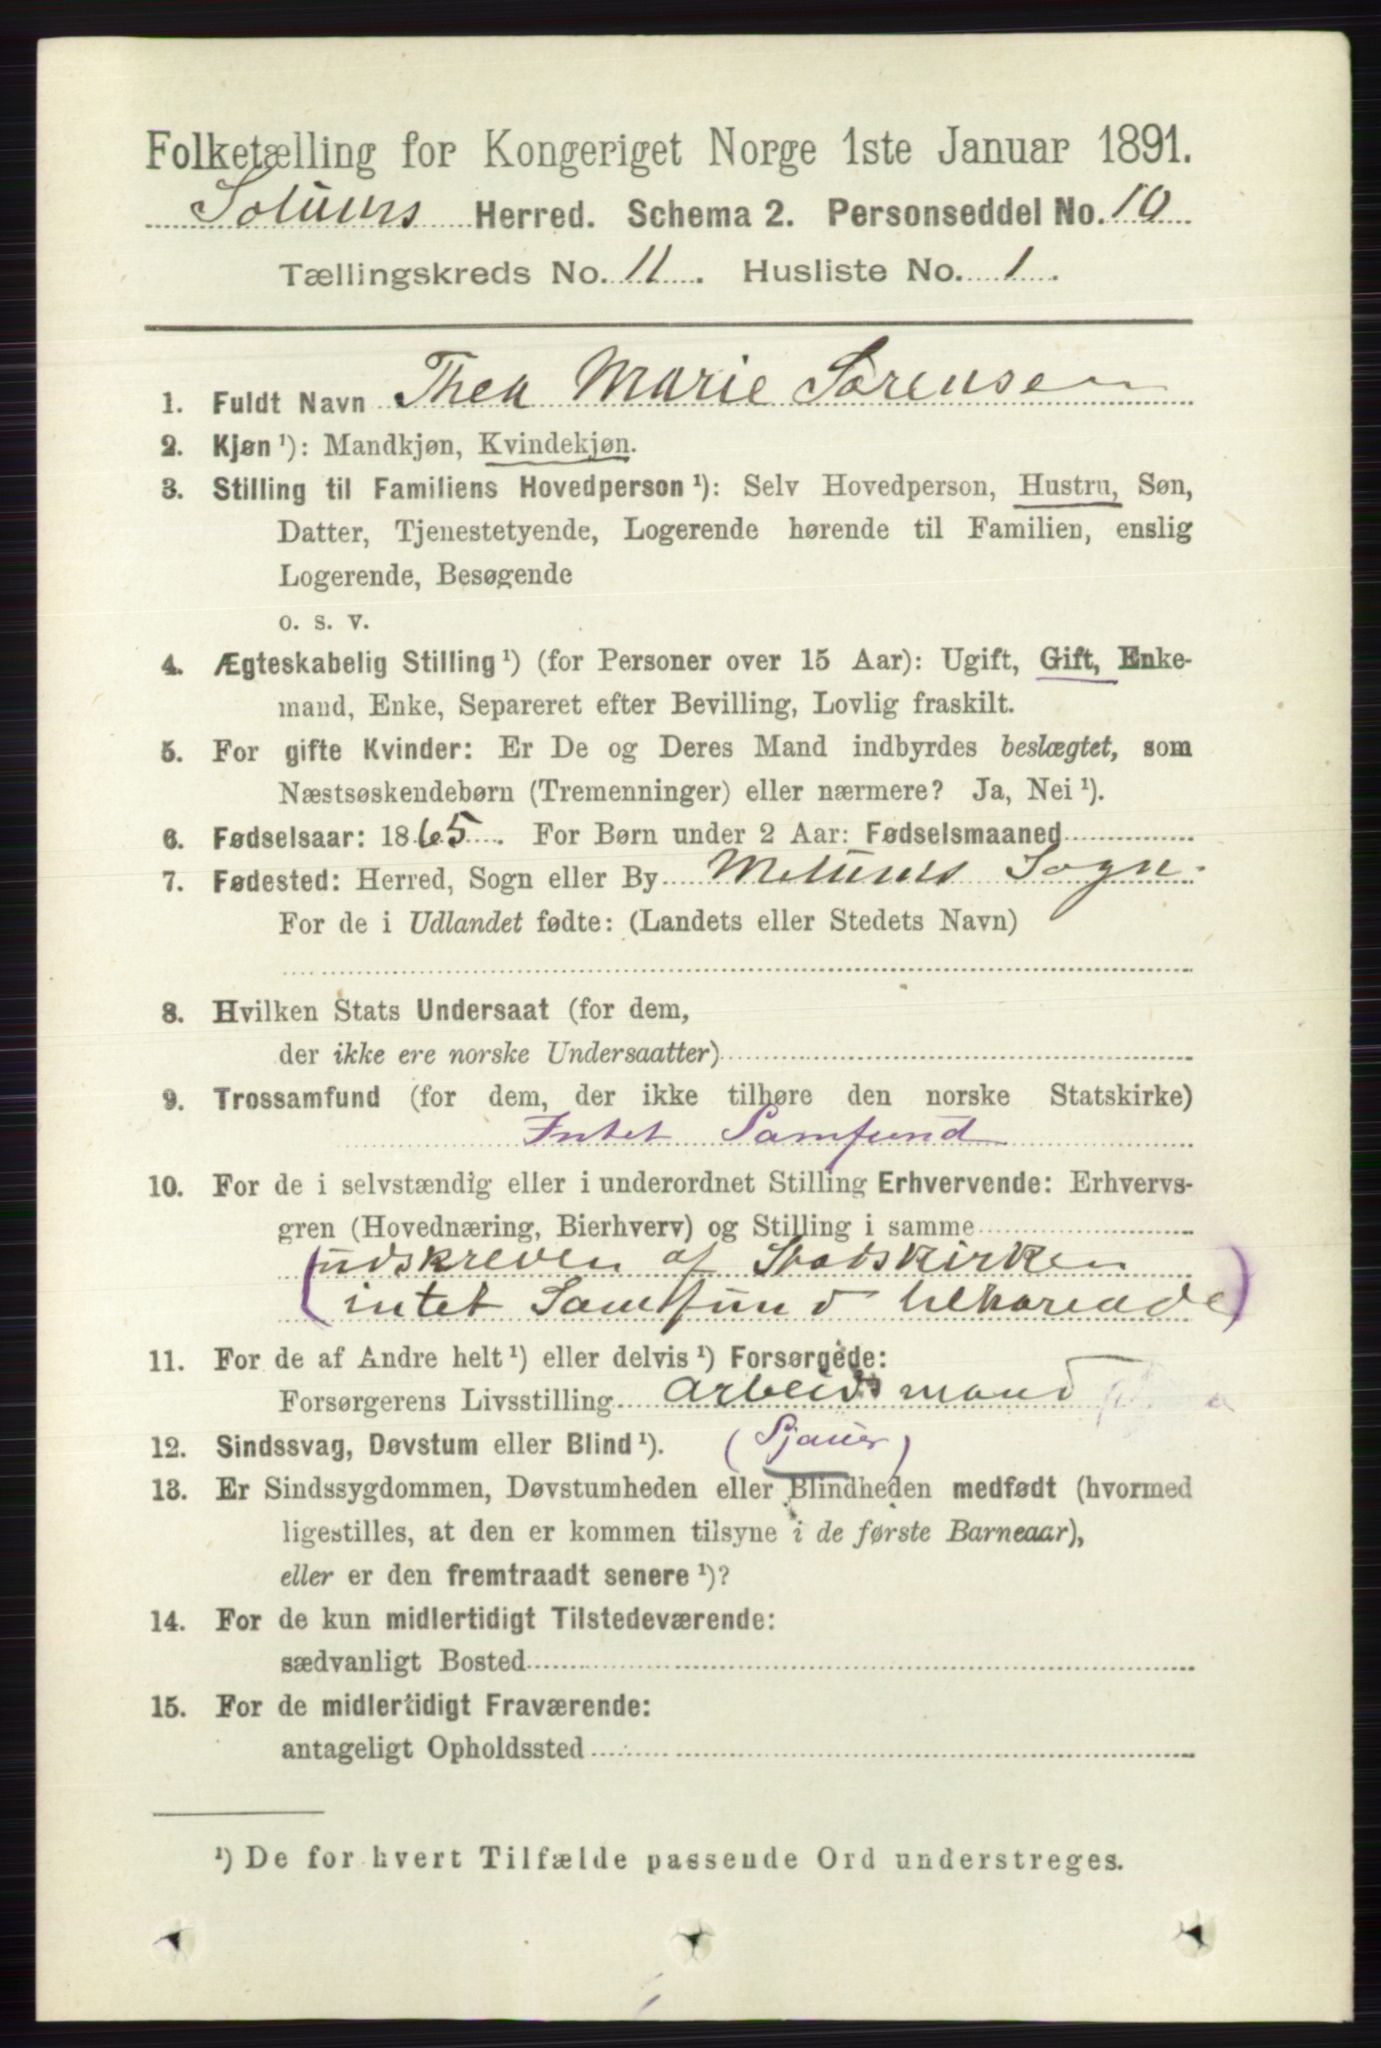 Folketælling for Kongeriget Norge 1ste Januar 1891.
Solums Herred. Schema 2. Personseddel No. 10
Tællingskreds No. 11. Husliste No. 1.
1. Fuldt Navn Thea Marie Sørensen
2. Kjøn ¹): Mandkjøn, Kvindekjøn.
3. Stilling til Familiens Hovedperson ¹): Selv Hovedperson, Hustru, Søn,
Datter, Tjenestetyende, Logerende hørende til Familien, enslig
Logerende, Besøgende
o. s. v.
4. Ægteskabelig Stilling ¹) (for Personer over 15 Aar): Ugift, Gift, Enke-
mand, Enke, Separeret efter Bevilling, Lovlig fraskilt.
5. For gifte Kvinder: Er De og Deres Mand indbyrdes beslægtet, som
Næstsøskendebørn (Tremenninger) eller nærmere? Ja, Nei ¹).
6. Fødselsaar: 1865. For Børn under 2 Aar: Fødselsmaaned
7. Fødested: Herred, Sogn eller By Melums Sogn.
For de i Udlandet fødte: (Landets eller Stedets Navn)
8. Hvilken Stats Undersaat (for dem,
der ikke ere norske Undersaatter)
9. Trossamfund (for dem, der ikke tilhøre den norske Statskirke)
Intet Samfund
10. For de i selvstændig eller i underordnet Stilling Erhvervende: Erhvervs-
gren (Hovednæring, Bierhverv) og Stilling i samme
(udskreven af Statskirken
intet Samfund tilhørende)
11. For de af Andre helt ¹) eller delvis ¹) Forsørgede:
Forsørgerens Livsstilling Arbeidsmand
12. Sindssvag, Døvstum eller Blind ¹). (Sjauer)
13. Er Sindssygdommen, Døvstumheden eller Blindheden medfødt (hvormed
ligestilles, at den er kommen tilsyne i de første Barneaar),
eller er den fremtraadt senere ¹)?
14. For de kun midlertidigt Tilstedeværende:
sædvanligt Bosted
15. For de midlertidigt Fraværende:
antageligt Opholdssted
¹) De for hvert Tilfælde passende Ord understreges.